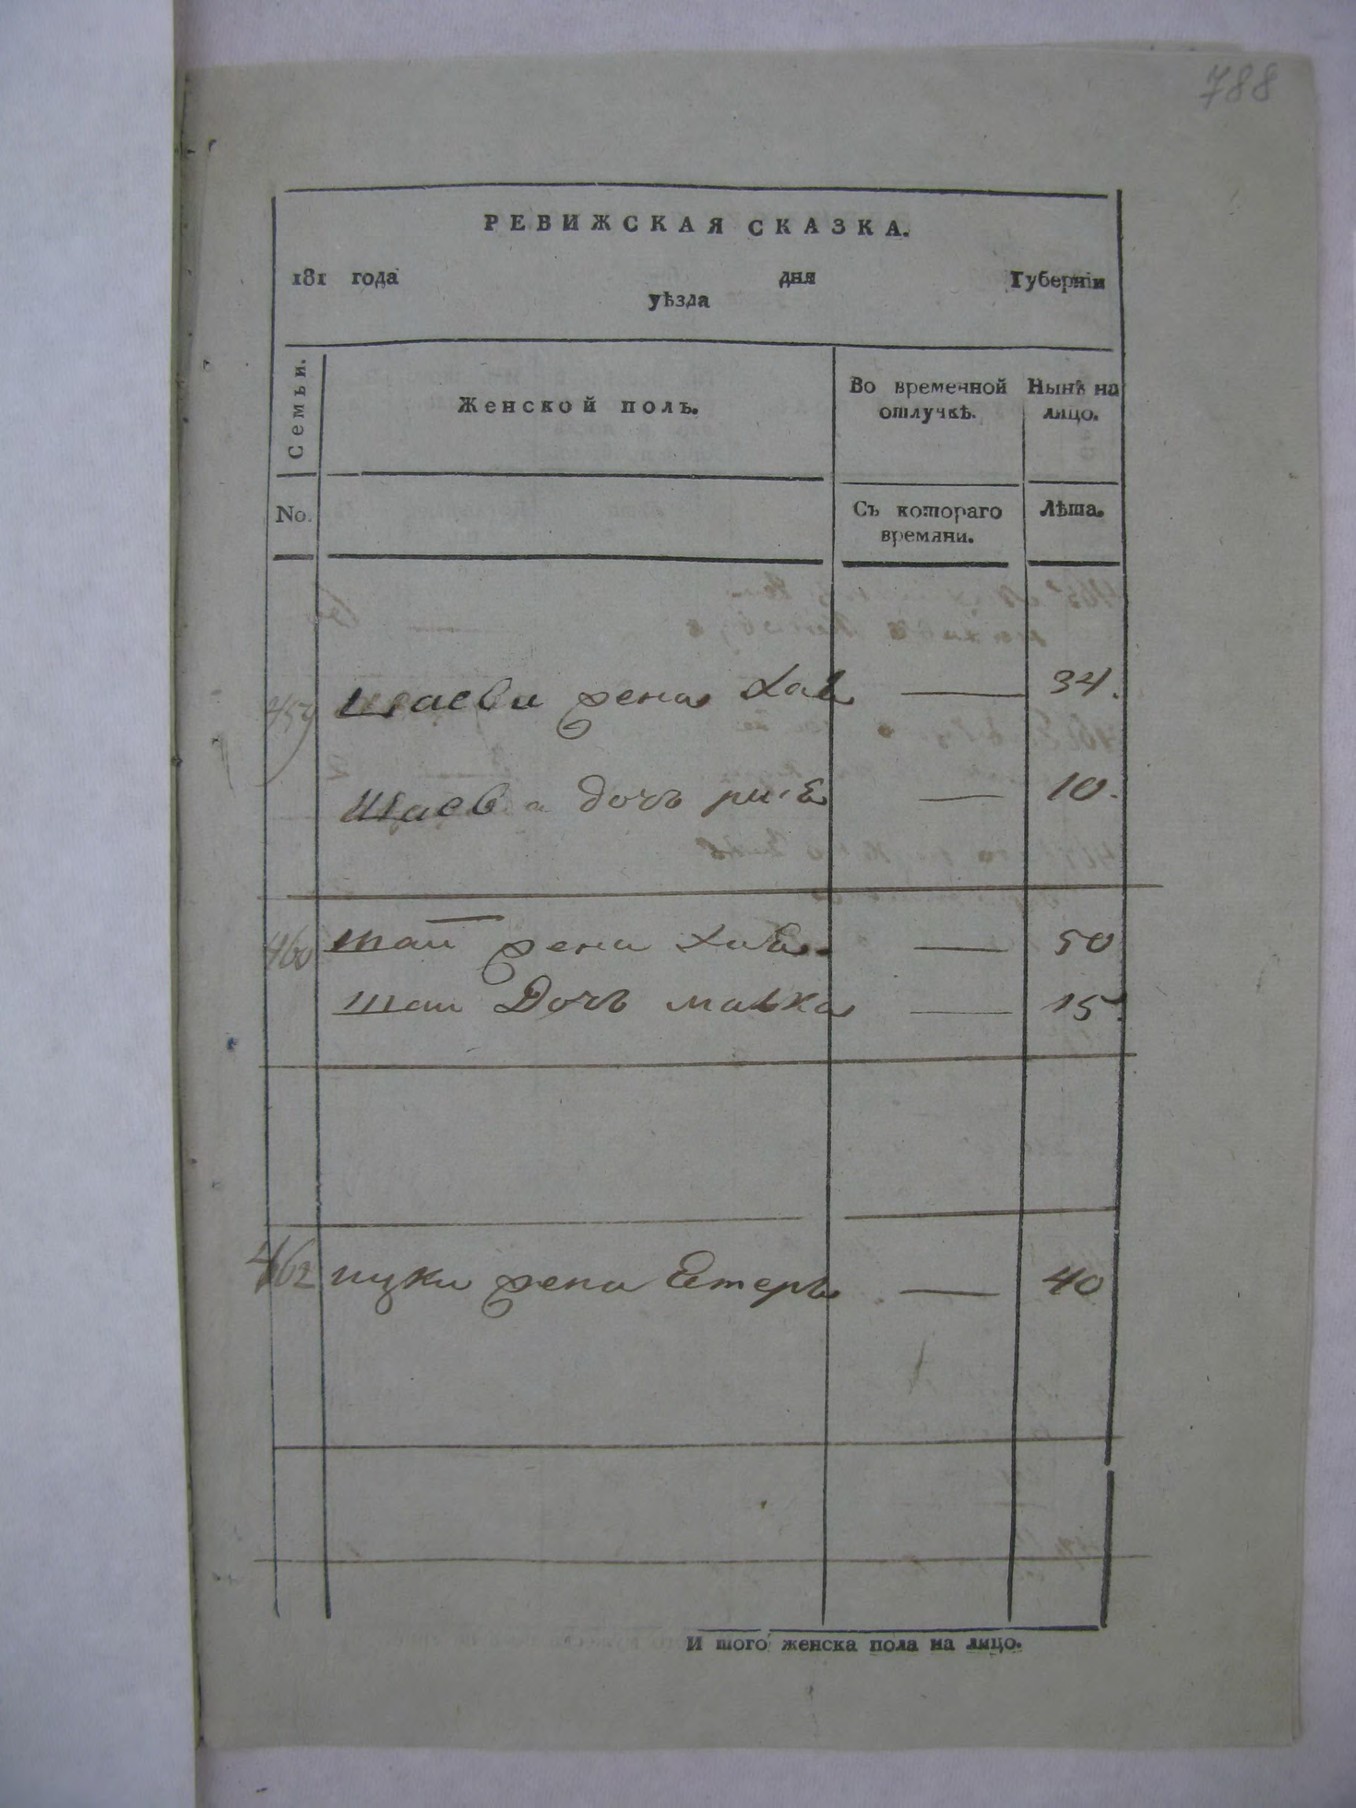 788
РЕВИЖСКАЯ СКАЗКА.
181 года дня Губерніи
уѣзда
Семьи.
Женской полъ.
Во временной отлучкѣ.
Нынѣ на лицо.
No.
Съ котораго времяни.
Лѣта.
459 жена Хая 34.
дочь 10.
460 жена Хая 50
Дочь малка 15.
462 ицки жена Етеръ 40
И того женска пола на лицо.